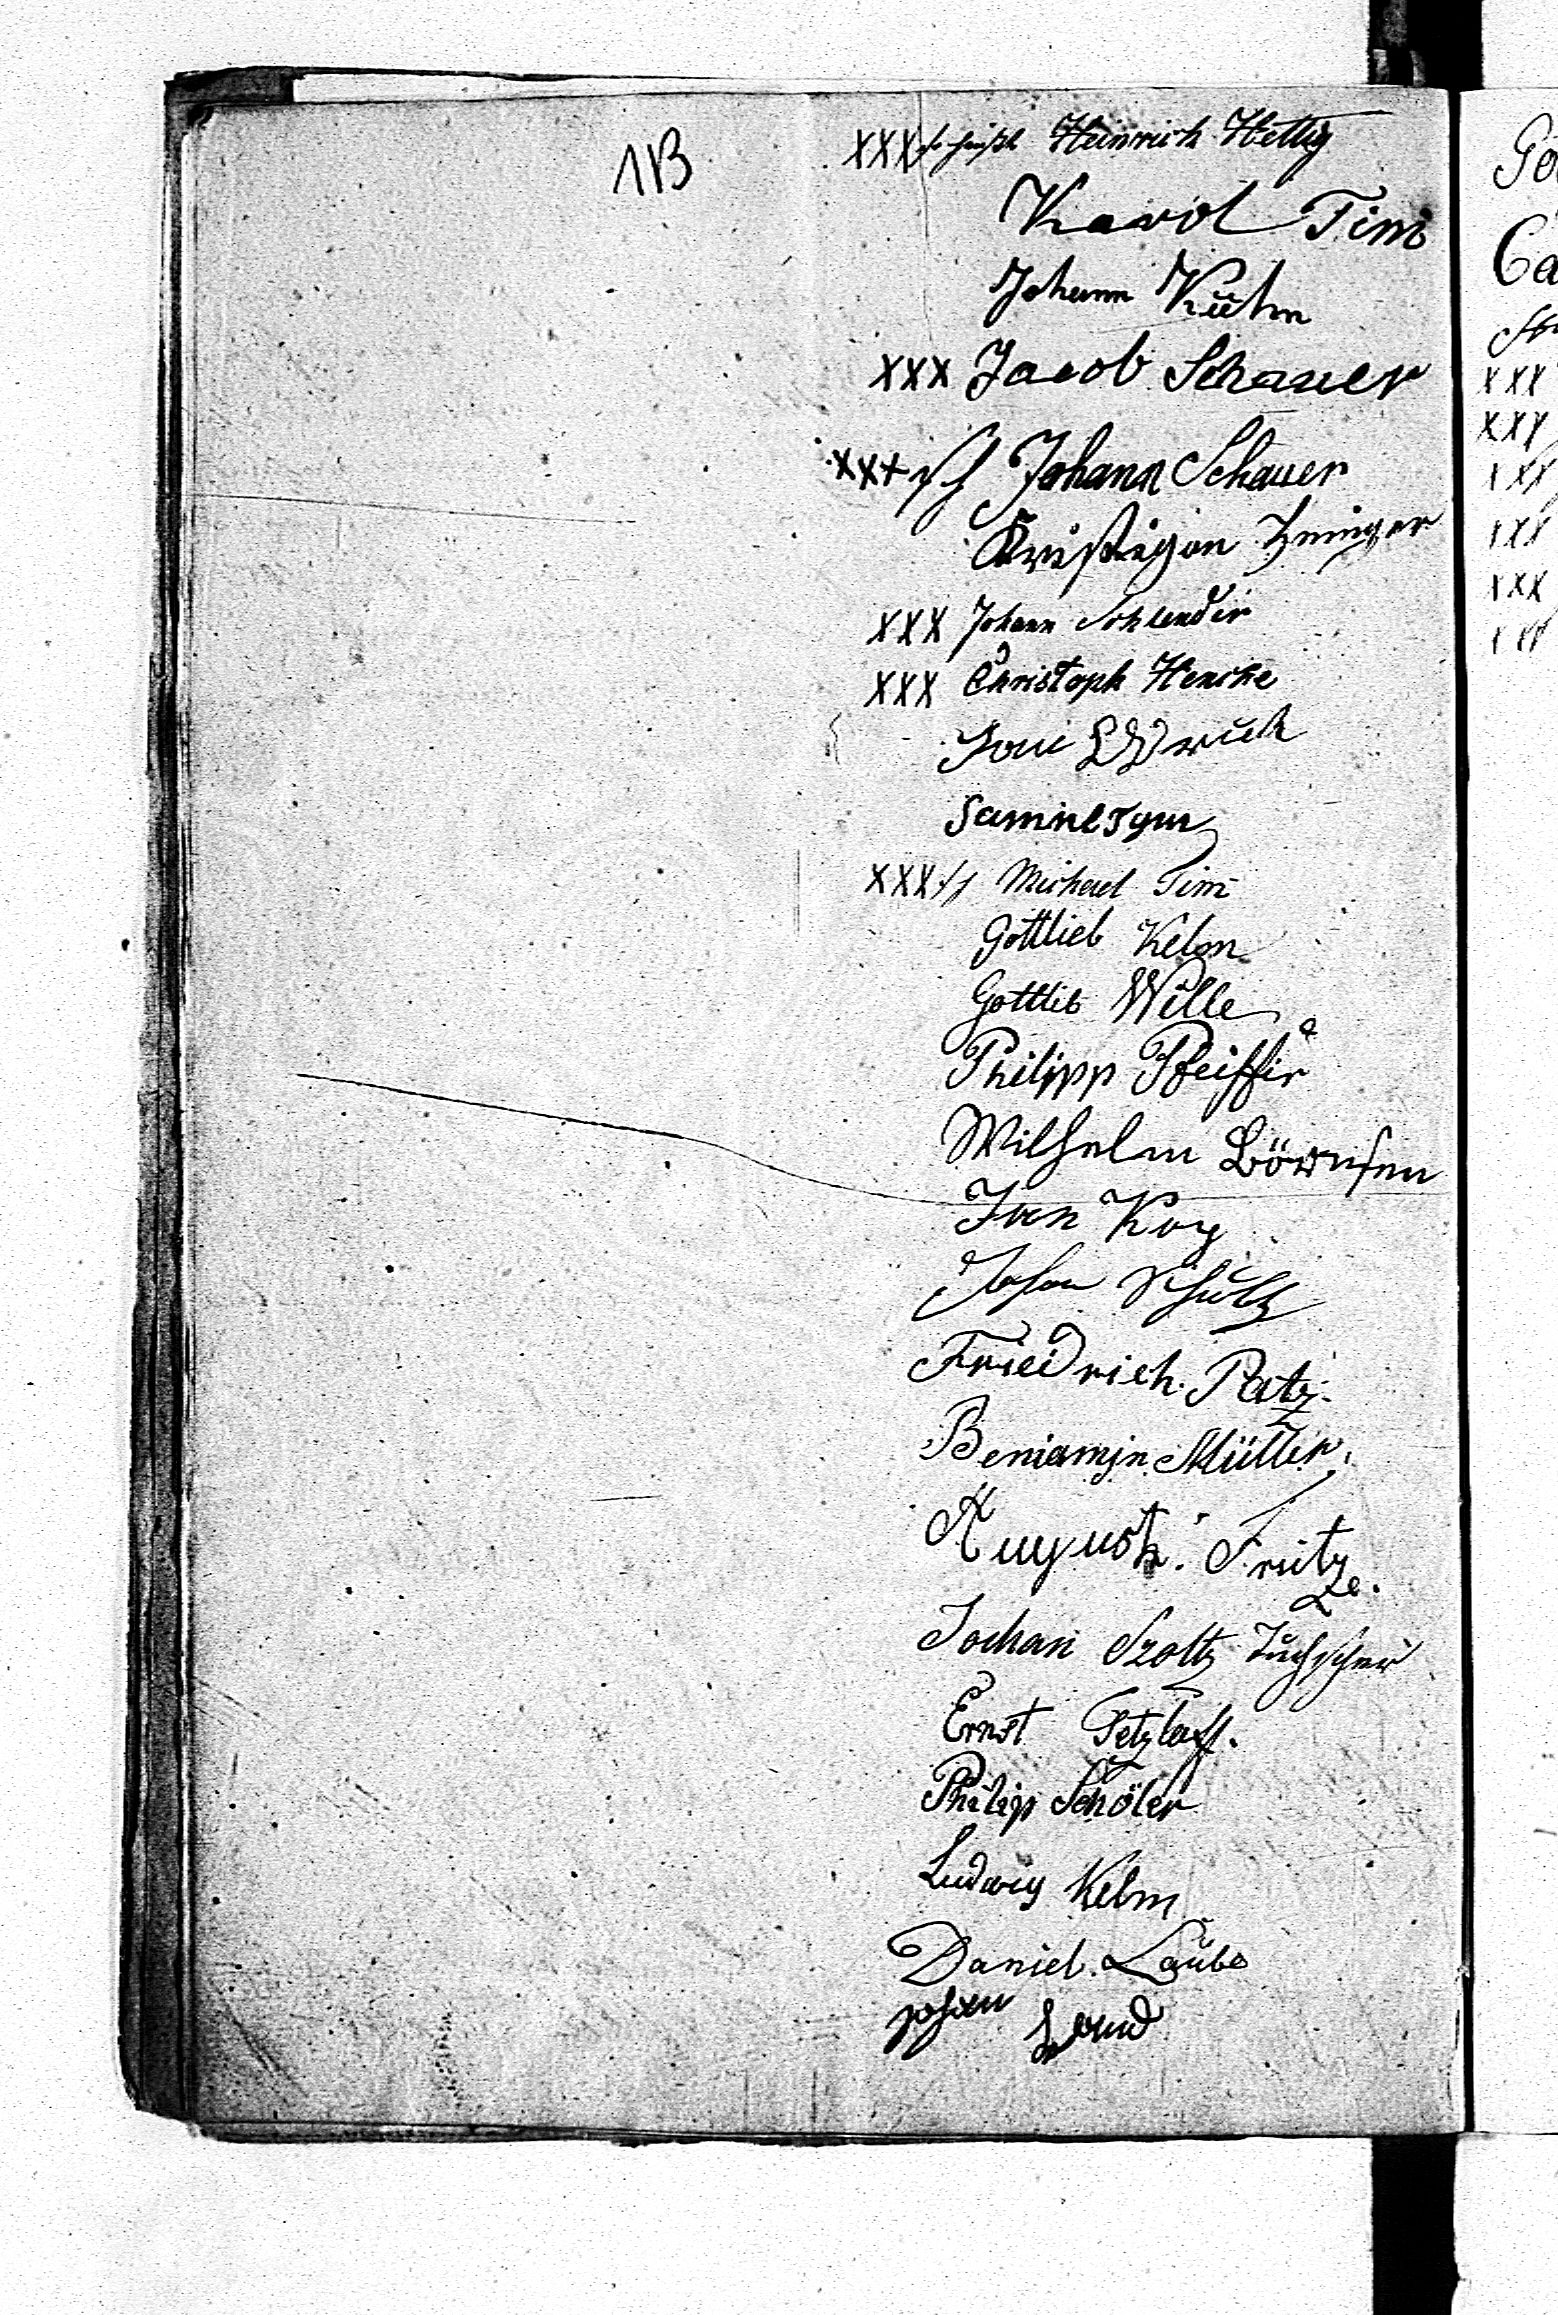 113
XXX Heinrich Hettig
Karol Timi
Johann Kühn
XXX Jacob Schauer
XXX Johann Schauer
Kristigan
XXX Johann Schlender
XXX Christoph Hencke

Samuel Tym
XXX Michael Tim
Gottlieb Kelm
Gottlieb Wille
Philipp Pfeiffer
Wilhelm
Iven
Johan Schultz
Friedrich Patz
Beniamin Müller
August Fritze.
Iochan Szoltz
Ernst Tetzlaff.
Philip Schöler
Ludwig Kelm
Daniel Laube
Johan
Go
Ca
XXX
XXX
XXX
XXX
XXX